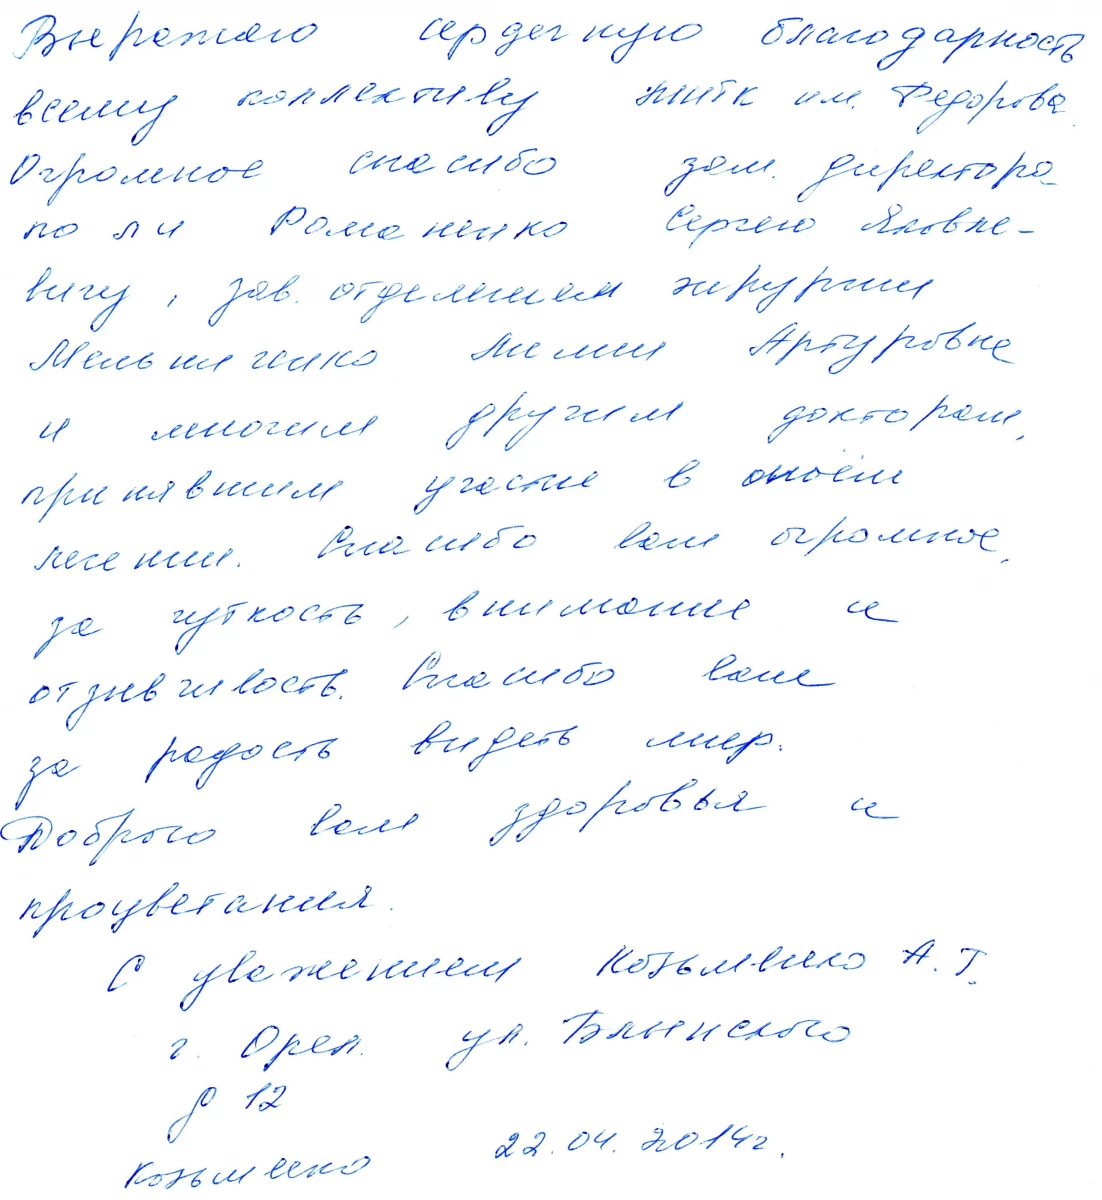 Выражаю сердечную благодарность
всему коллективу МНТК им. Федорова.
Огромное спасибо зам. директора
по л/ч Романенко Сергею Яковле-
вичу, зав. отделением хирургии
Мельниченко Артуровне
и многим другим докторам,
принявшим участие в моём
лечении. Спасибо вам огромное,
за чуткость, внимание и
отзывчивость. Спасибо вам
за радость видеть мир.
Доброго вам здоровья и
процветания.
С уважением А. Т.
г. Орел. ул.
д 12
22.04.2014г.